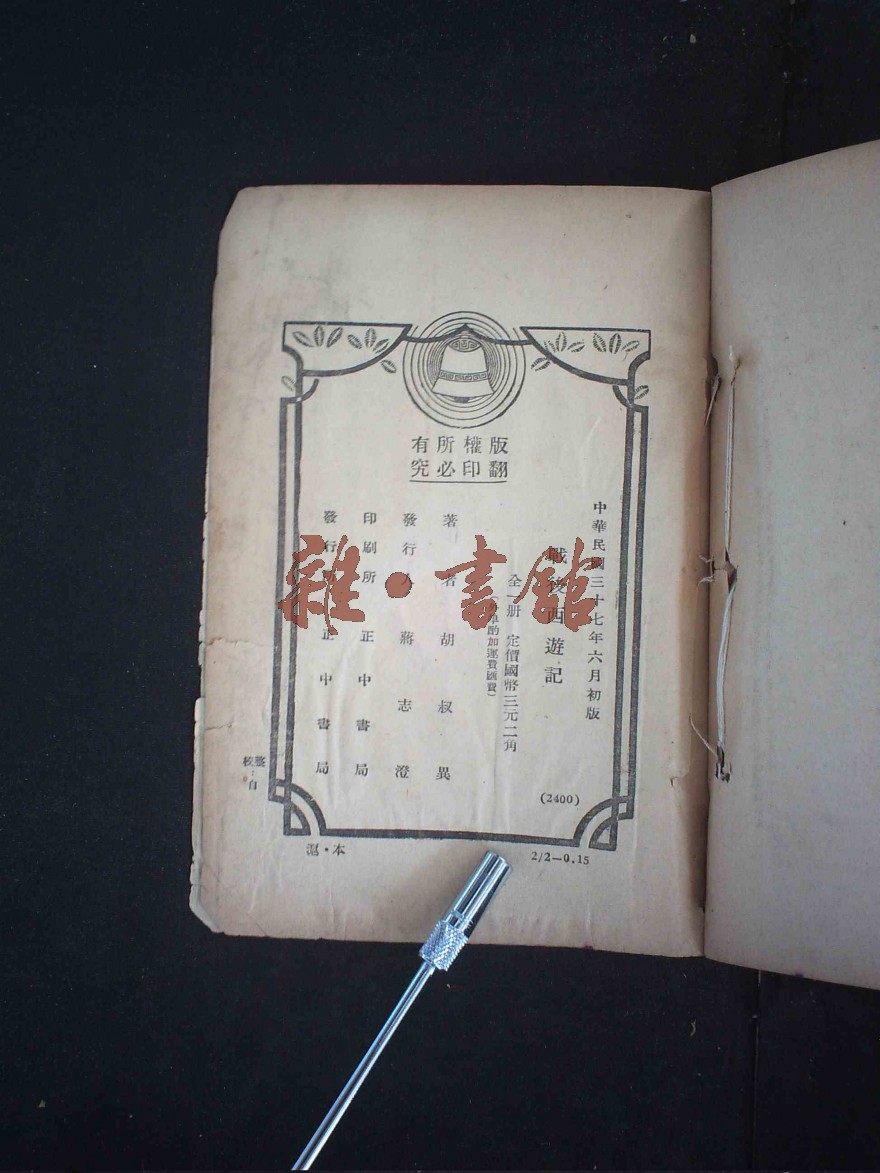 版權所有
翻印必究
中華民國三十七年六月初版
戰後西遊記
全一册 定價國幣三元二角
酌加運費匯費)
(2400)
著者 胡叔異
發行人 蔣志澄
印刷所 正中書局
發行所 正中書局
校:自
滬·本
2/2—0.15
雜·書館